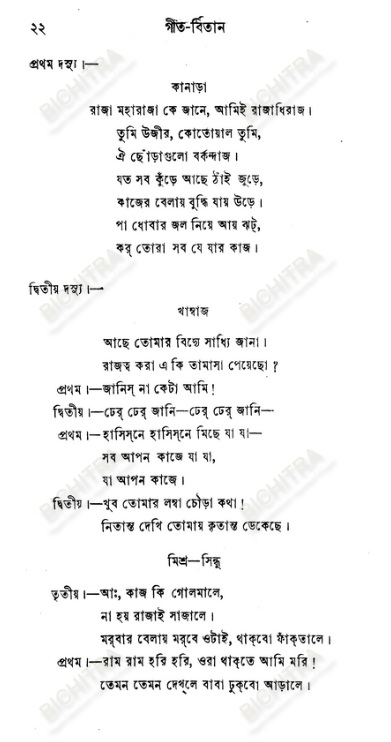 ২২ গীত-বিতান
প্রথম দস্যু।—
কানাড়া
রাজা মহারাজা কে জানে, আমিই রাজাধিরাজ।
তুমি উজীর, কোতোয়াল তুমি,
ঐ ছোঁড়াগুলো বর্কন্দাজ।
যত সব কুঁড়ে আছে ঠাঁই জুড়ে,
কাজের বেলায় বুদ্ধি যায় উড়ে।
পা ধোবার জল নিয়ে আয় ঝট্,
কর্ তোরা সব যে যার কাজ।
দ্বিতীয় দস্যু।—
খাম্বাজ
আছে তোমার বিদ্যে সাধ্যি জানা।
রাজত্ব করা এ কি তামাসা পেয়েছো?
প্রথম।—জানিস্ না কেটা আমি!
দ্বিতীয়।—ঢের্ ঢের্ জানি—ঢের্ ঢের্ জানি—
প্রথম।—হাসিস্‌নে হাসিস্‌নে মিছে যা যা—
সব আপন কাজে যা যা,
যা আপন কাজে।
দ্বিতীয়।—খুব তোমার লম্বা চৌড়া কথা!
নিতান্ত দেখি তোমায় কৃতান্ত ডেকেছে।
মিশ্র—সিন্ধু
তৃতীয়।—আঃ, কাজ কি গোলমালে,
না হয় রাজাই সাজালে।
মর্‌বার বেলায় মর্‌বে ওটাই, থাক্‌বো ফাঁক্‌তালে।
প্রথম।—রাম রাম হরি হরি, ওরা থাক্‌তে আমি মরি!
তেমন তেমন দেখ্‌লে বাবা ঢুক্‌বো আড়ালে।
BICHITRA